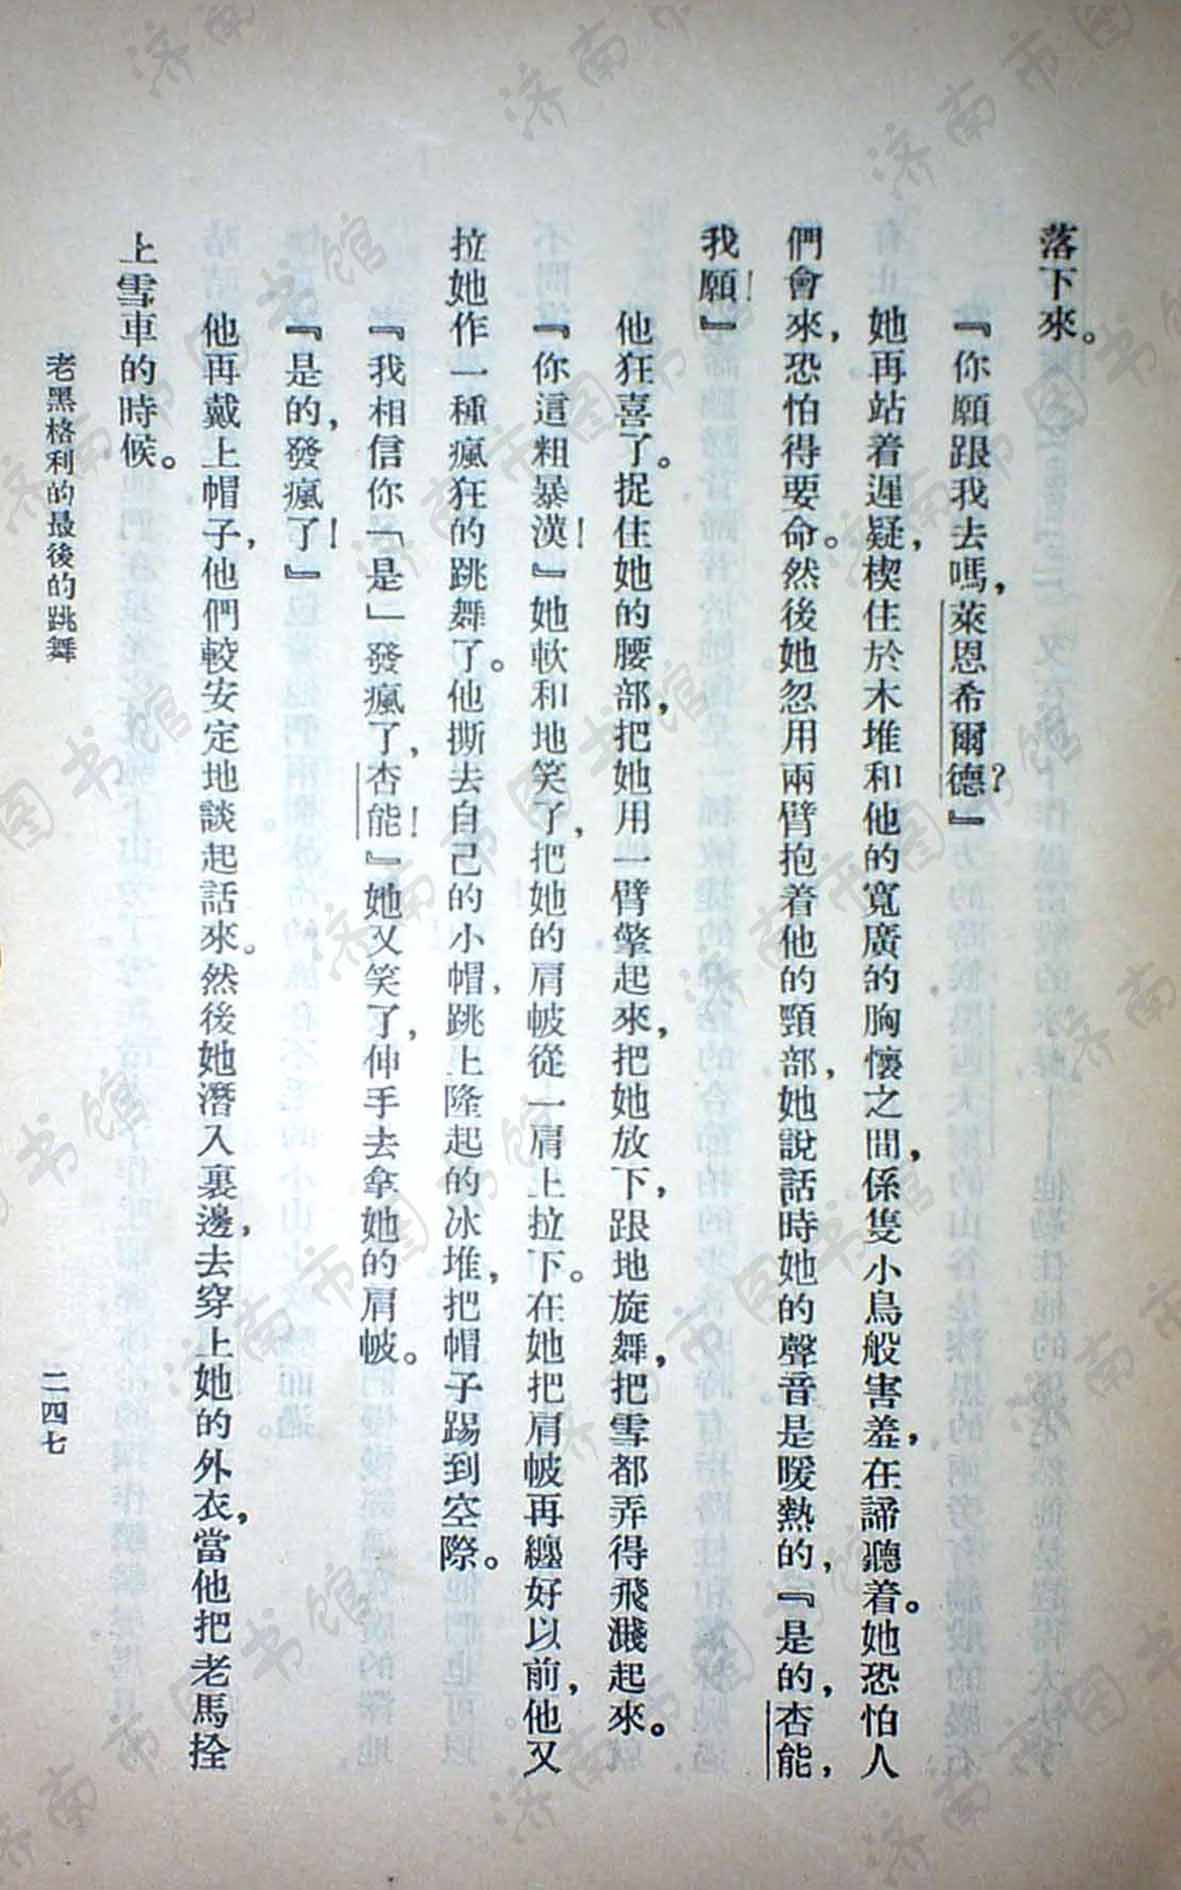 落下來。
『你願跟我去嗎，萊恩希爾德？』
她再站着遲疑，楔住於木堆和他的寬廣的胸懷之間，係隻小鳥般害羞，在諦聽着。她恐怕人
們會來，恐怕得要命。然後她忽用兩臂抱着他的頸部，她說話時她的聲音是暖熱的，『是的，杏能，
我願！』
他狂喜了。捉住她的腰部，把她用一臂擎起來，把她放下，跟地旋舞，把雪都弄得飛濺起來。
『你這粗暴漢！』她軟和地笑了，把她的肩帔從一肩上拉下。在她把肩帔再纏好以前，他又
拉她作一種瘋狂的跳舞了。他撕去自己的小帽，跳上隆起的冰堆，把帽子踢到空際。
『我相信你「是」發瘋了，杏能！』她又笑了，伸手去拿她的肩帔。
『是的，發瘋了！』
他再戴上帽子，他們較安定地談起話來。然後她潛入裏邊，去穿上她的外衣，當他把老馬拴
上雪車的時候。
老黑格利的最後的跳舞
二四七
济南市图书馆